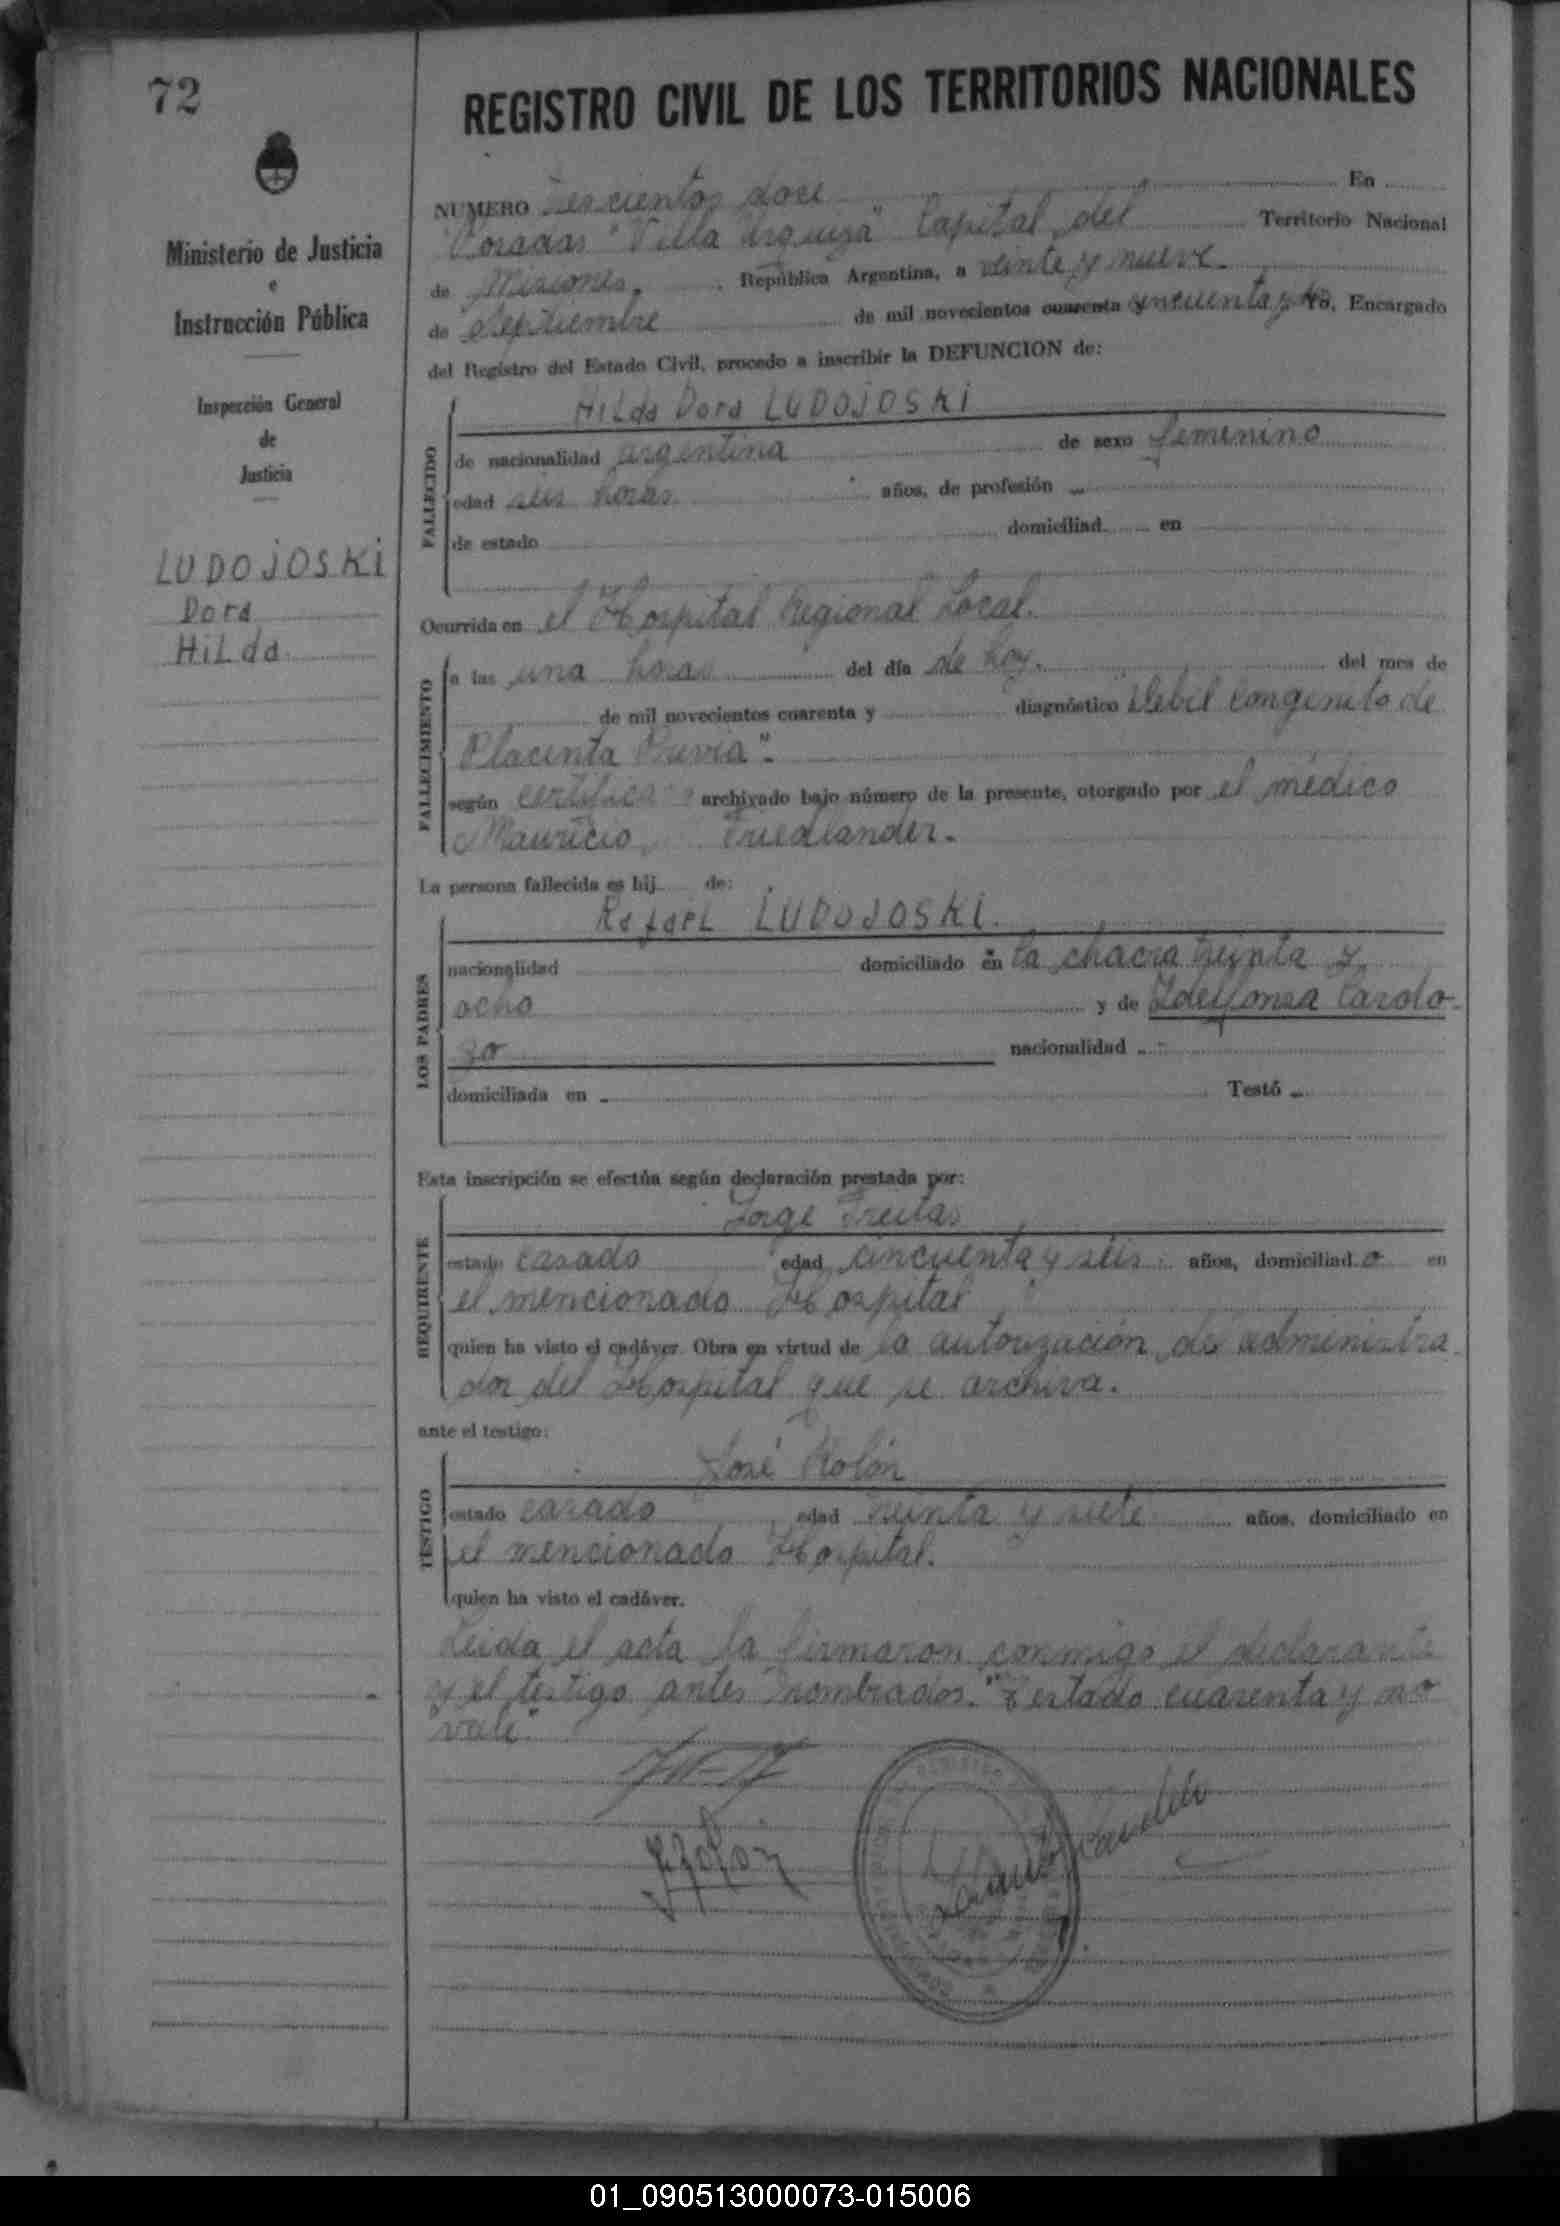 72
Ministerio de Justicia
e
Instrucción Pública
Inspección General
de
Justicia
LUDOJOSKi
Dora
HiLda
REGISTRO CIVIL DE LOS TERRITORIOS NACIONALES
NUMERO doce En
Posadas "Villa Urquiza" Capital del Territorio Nacional
de Misiones. República Argentina, a veinte y nueve
de Septiembre de mil novecientos cuarenta y cincuenta y Yo, Encargado
del Registro del Estado Civil, procedo a inscribir la DEFUNCION de:
FALLECIDO
HiLda Dora LUDOJOSKi
de nacionalidad argentina de sexo femenino
edad seis horas años, de profesión
de estado domiciliad en
Ocurrida en el Hospital Regional Local.
FALLECIMIENTO
a las una horas del día de hoy. del mes de
de mil novecientos cuarenta y diagnóstico "Debil Congenito de
Placenta Previa".
según archivado bajo número de la presente, otorgado por el médico
Mauricio Friedlander.
La persona fallecida es hij de:
LOS PADRES
RafaeL LUDOJOSKi.
nacionalidad domiciliado en la chacra treinta y
ocho y de Ildelfonsa Cardo-
zo nacionalidad
domiciliada en Testó
Esta inscripción se efectúa según declaración prestada por:
REQUIRENTE
Jorge Freitas
estado casado edad cincuenta y seis años, domiciliad o en
el mencionado Hospital
quien ha visto el cadáver. Obra en virtud de la autorización del administra-
dor del Hospital que se archiva.
ante el testigo:
TESTIGO
José Rolón
estado casado edad treinta y siete años, domiciliado en
el mencionado Hospital.
quien ha visto el cadáver.
Leida el acta la firmaron conmigo el declarante
y el testigo antes nombrados. "Testado cuarenta y no
vale".
01_090513000073-015006